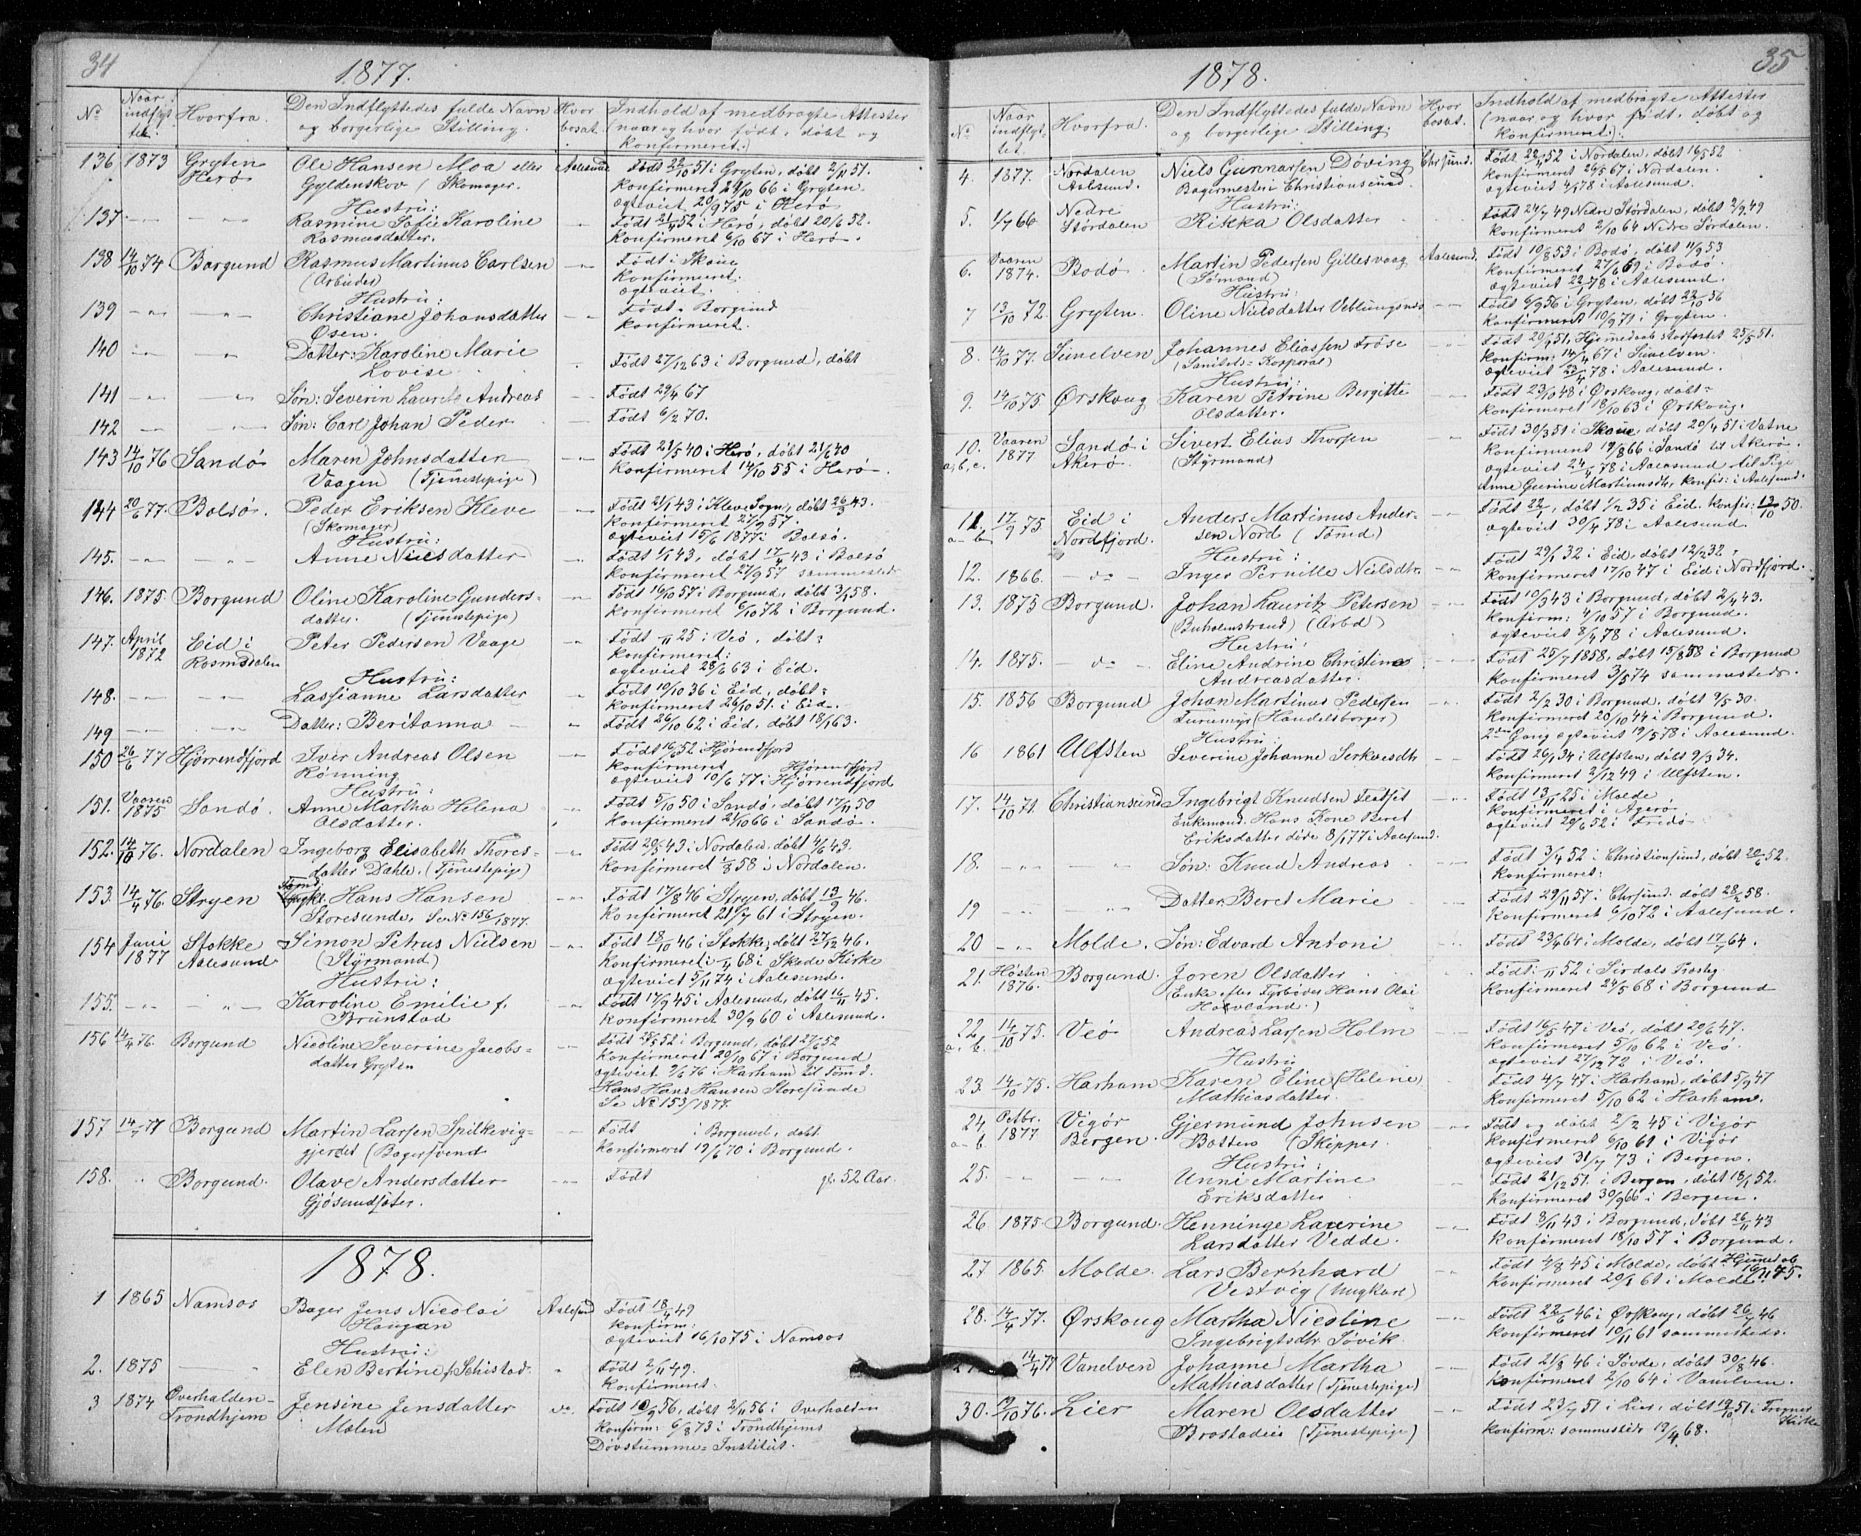 34
1877.
Nº Naar indflyttet. Hvorfra. Den Indflyttedes fulde Navn og borgerlige Stilling. Hvor bosat. Indhold af medbragte Attester (naar og hvor født, døbt og konfirmeret.)
136 1873 Gryten Herø Ole Hansen Moa eller Gyldenskov (Skomager. Aalesund Født 22/10 51 i Gryten, døbt 2/11 51.
Konfirmeret 28/10 66 i Gryten.
Hustru: ogteviet 20/9 75 i Herø
137 -"- -"- Rasmine Sofie Karoline Rasmusdatter. -"- Født 21/4 52 i Herø, døbt 20/6 52.
Konfirmeret 6/10 67 i Herø.
138 14/10 74 Borgund Rasmus Martinus Carlsen (Arbeider) -"- Født i Skoue
Konfirmeret.
ogteviet.
Hustru:
139 -"- -"- Christiane Johansdatter Øsen. -"- Født - Borgund
Konfirmeret.
140 -"- " Datter: Karoline Marie Lovise. Født 27/12 63 i Borgund, døbt
141 -"- -"- Søn: Severin Laurits Andreas -"- Født 29/4 67
142 -"- -"- Søn: Carl Johan Peder -"- Født 6/2 70.
143 14/10 76 Sandø Maren Johnsdatter Vaagen (Tjenestepige) -"- Født 21/5 40 i Herø, døbt 21/6 40
Konfirmeret 14/10 55 i Herø.
144 20/6 77. Bolsø. Peder Eriksen Kleve (Skomager) -"- Født 21/1 43 i Kleve Sogn, døbt 26/3 43.
Konfirmeret 27/9 57.
Hustru: ogteviet 15/6 1877 i Bolsø.
145. -"- -"- Anne Nielsdatter -"- Født 1/1 43, døbt 17/4 43 i Bolsø
Konfirmeret 27/9 57 sammesteds
146. 1875. Borgund Oline Karoline Gundersdatter. (Tjenestepige) -"- Født 19/10 57 i Borgund, døbt 3/1 58.
Konfirmeret 6/10 72 i Borgund.
147. April 1872 Eid i Romsdalen Peter Pedersen Vaage -"- Født -/11 25 i Veø, døbt:
Konfirmeret:
ogteviet 28/6 63 i Eid.
Hustru:
148. -"- -"- Lassianne Larsdatter -"- Født 10/10 36 i Eid, døbt:
Konfirmeret 26/10 51. i Eid.
149 -"- -"- Datter: Beritanna " Født 26/10 62 i Eid, døbt 18/1 63.
150 26/6 77 Hjørrendfjord Iver Andreas Olsen Rønning -"- Født 16/ 52 Hjørendfjord
Konfirmeret Hjørrendfjord
ogteviet 10/6 77 i Hjørrendfjord
Hustru:
151. Vaaren 1875 Sandø. Anne Martha Helena Olsdatter. -"- Født 5/10 50 i Sandø, døbt 17/11 50
Konfirmeret 21/10 66 i Sandø.
152. 14/10 76. Nordalen Ingeborg Elisabeth Thoresdatter Dahle. (Tjenestepige) -"- Født 20/3 43 i Nordalen, døbt 4/6 43.
Konfirmeret 58 i Nordalen.
153. 14/4 76. Stryen Tømd. Hans Hansen Storesunde, Se Nº 156/1877. -"- Født 17/8 46 i Stryen, døbt 13/9 46.
Konfirmeret 21/7 61 i Stryen.
154 Juni 1877 Stokke Aalesund Simon Petrus Nielsen (Styrmand) -"- Født 18/10 46 i Stokke, døbt 27/12 46.
Konfirmeret -/11 68 i Skede Kirke
Hustru: ogteviet 5/11 74 i Aalesund.
155. -"- -"- Karoline Emilie f. Brunstad -"- Født 17/9 45 i Aalesund, døbt 16/11 45.
Konfirmeret 30/9 60 i Aalesund.
156 14/4 76. Borgund Nicoline Severine Jacobsdatter Gryten -"- Født 25/5 52 i Borgund, døbt 27/6 52
Konfirmeret 20/10 67 i Borgund
ogteviet 2/6 76 i Harham til Tømd.
Hans Hans Hansen Storesunde
Se Nº 153/1877.
157 14/7 77 Borgund Martin Larsen Spilkeviggjerdet (Bagersvend -"- Født i Borgund, døbt
Konfirmeret 19/6 70 i Borgund.
158. " Borgund. Olave Andersdatter Gjøsundsæter. -"- Født gl. 52 Aar.
1878.
1 1865 Namsos Bager Jens Nicolai Haugan Aalesund Født 18/4 49
Konfirm:
Hustru: ogteviet 16/10 75 i Namsos
2. 1875 -"- Elen Bertine f. Schistad. " Født 2/11 49.
Konfirmeret.
3 1874 Overhalden - Trondhjem Jensine Jensdatter Molen do. Født 10/9 56, døbt 2/11 56 i Overhalden
Konfirm: 6/8 73 i Trondhjems
Døvstumme-Institut.
35
1878.
Nº Naar indflyttet. Hvorfra. Den Indflyttedes fulde Navn og borgerlige Stilling. Hvor bosat. Indhold af medbragte Attester (naar og hvor født, døbt og konfirmeret.)
4. 1877. Nordalen Aalesund. Niels Gunnarsen Døving Bagermester i Christiansund. Chrsund. Født 22/4 52 i Nordalen, døbt 16/5 52
Konfirmeret 29/5 67 i Nordalen.
Hustru: ogteviet 4/1 78 i Aalesund.
5. 1/7 66 Nedre Størdalen Rikka Olsdatter -"- Født 24/7 49 Nedre Stördalen, døbt 2/9 49
Konfirmeret 2/10 64 Nedre Sørdalen.
6. Vaaren 1874. Bodø. Martin Pedersen Gillesvaag (Sømand) Aalesund. Født 10/8 53 i Bodø, døbt 11/9 53
Konfirmeret 27/6 69 i Bodø.
Hustru: ogteviet 22/1 78 i Aalesund.
7 13/10 72. Gryten. Oline Nielsdatter Veblungsnes -"- Født 6/9 56 i Gryten, døbt 22/10 56
Konfirmeret 10/9 71 i Gryten.
8. 14/10 77. Sunelven Johannes Eliassen Frøse (Sanitets-Korporal) -"- Født 29/4 51, Hjemedøb stadfæstet 25/5 51.
Konfirm: 14/4 67 i Sunelven.
Hustru: ogteviet 23/4 78 i Aalesund.
9. 14/10 75 Ørskoug Karen Petrine Bergitte Olsdatter. -"- Født 23/10 48 i Ørskoug, døbt -
Konfirmeret 18/10 63 i Ørskoug.
10. a, b, c. Vaaren 1877 Sandø i Akerø. Sivert Elias Thorsen (Styrmand) -"- Født 30/3 51 i Skoue, døbt 20/4 51 i Vatne
Konfirmeret 19/8 66 i Sandø til Akerø.
ogteviet 24/4 78 i Aalesund til Pige
Anne Gurine Martinusdtr, konfir: i Aalesund.
11. a-b 17/9 75 Eid i Nordfjord. Anders Martinus Andersen Nord (Tømd) -"- Født 22/1, døbt 1/2 35 i Eid. Konfir: 13/10 50.
Hustru: ogteviet 30/4 78 i Aalesund.
12. 1866. -"- Inger Pernille Nielsdtr. -"- Født 29/1 32 i Eid, døbt 12/2 32:
Konfirmeret 17/10 47 i Eid i Nordfjord.
13. 1875 Borgund. Johan Lauritz Petersen (Buholmstrand) (Arbd) -"- Født 10/3 43 i Borgund, døbt 2/4 43.
Konfirm: 4/10 57 i Borgund.
Hustru: ogteviet 8/4 78 i Aalesund.
14. 1875. -"- Eline Andrine Christine Andreasdatter. -"- Født 25/7 1858, døbt 15/8 58 i Borgund
Konfirmeret 3/5 74 sammesteds.
15. 1856 Borgund Johan Martinus Pedersen Furumyr (Handelsborger) -"- Født 2/2 30 i Borgund, døbt 9/5 30.
Konfirmeret 20/10 44 i Borgund.
Hustru: 2den Gang ogteviet 19/5 78 i Aalesund.
16 1861 Ulfsten Severine Johanne Serkvesdtr -"- Født 26/1 34 i Ulfsten, døbt 9/3 34.
Konfirmeret 2/12 49 i Ulfsten.
17. 14/10 71 Christiansund Ingebrigt Knudsen Textset -"- Født 13/11 25 i Molde
Enkmand. Hans Kone Beret Konfirmeret i Agerø.
Eriksdatter døde 8/1 77 i Aalesund. ogteviet 20/6 52 i Fredø
18. -"- -"- Søn: Knud Andreas -"- Født 3/4 52 i Christiansund, døbt 20/6 52.
Konfirmeret:
19 -"- -"- Datter: Beret Marie -"- Født 29/11 57 i Chrsund. døbt 28/2 58.
Konfirmeret 6/10 72 i Aalesund.
20 -"- Molde. Søn: Edvard Antoni -"- Født 23/4 64 i Molde, døbt 17/7 64.
21. Høsten 1876. Borgund. Joren Olsdatter (Enke efter Fyrbøder Hans Olai Hovland.) -"- Født: -/11 52 i Sirdals Prostg
Konfirmeret 24/5 68 i Borgund
22. a. b. 14/10 75. Veø Andreas Larsen Holm -"- Født 16/5 47 i Veø, døbt 20/6 47.
Konfirmeret 5/10 62 i Veø.
Hustru ogteviet 27/12 72 i Veø.
23. 14/10 75. Harham Karen Eline (Helene) Mathiasdatter. -"- Født 4/7 47 i Harham, døbt 5/9 47
Konfirmeret 5/10 62 i Harham.
24 a-b Octbr. 1877 Vigør Bergen. Gjermund Johnsen Botten (Skipper) -"- Født og døbt 2/2 45 i Vigør
Konfirmeret 6/10 61 i Vigør
Hustru: ogteviet 31/7 73 i Bergen.
25. -"- -"- Unni Martine Eriksdatter. -"- Født 21/12 51. i Bergen, døbt 18/1 52.
Konfirmeret 30/9 66 i Bergen.
26 1875 Borgund. Henninge Laurine Larsdatter Vedde. -"- Født 8/11 43 i Borgund, døbt 26/11 43
Konfirmeret 18/10 57 i Borgund.
27 1865. Molde. Lars Bernhard Vestvig (Ungkarl) -"- Født 4/8 45 i Molde, døbt Hjemedøb 19/11 45.
Konfirmeret 20/1 61 i Molde.
28. 14/4 77. Ørskoug Martha Nicoline Ingebrigtsdtr. Søvik. -"- Født 22/6 46 i Ørskoug, døbt 26/7 46
Konfirmeret 10/11 61 sammesteds.
14/4 77 Vanelven Johanne Martha Mathiasdatter (Tjenestepige) -"- Født 21/8 46 i Søvde, døbt 30/8 46.
Konfirmeret 2/10 64 i Vanelven.
30. 9/10 76. Lier Maren Olsdatter Brastadeie (Tjenestepige) -"- Født 23/7 51 i Lier, døbt 19/10 51 i Frogner Kirke
Konfirm: sammesteds 19/4 68.